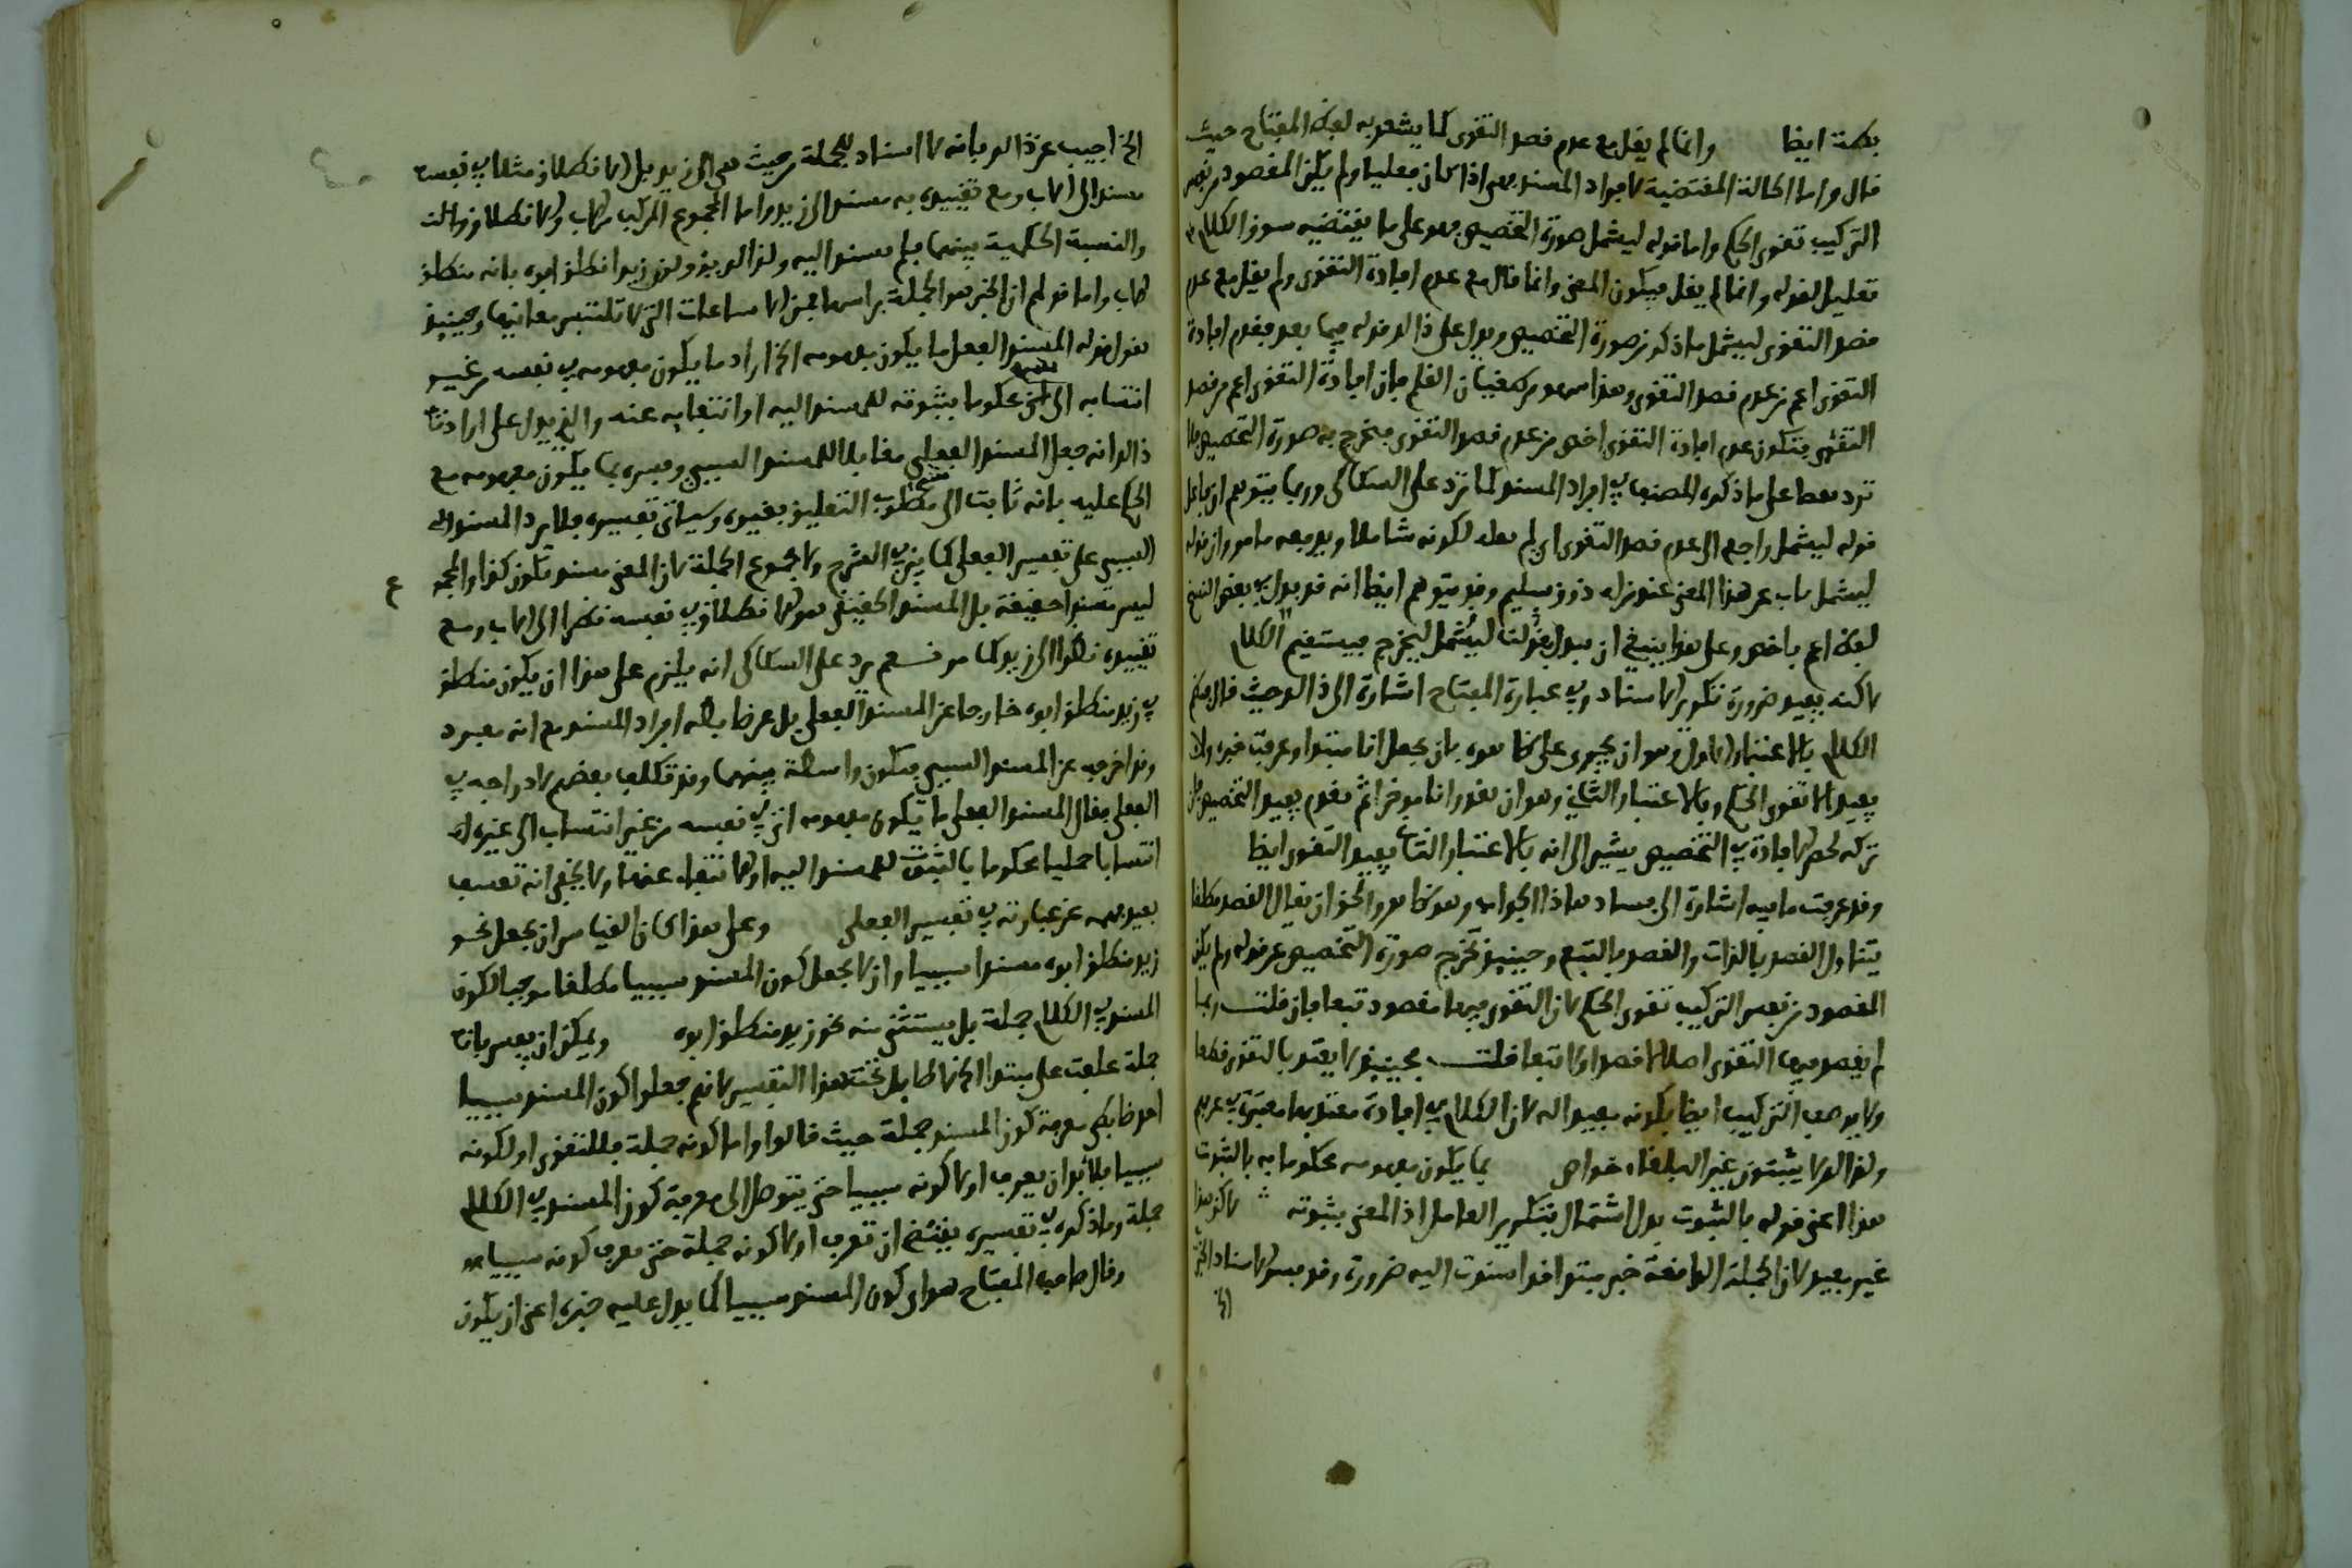 بكمة ايضا وانما لم يقل مع عدم قصد التقوى كما يشعر به لفظ المفتاح حيث
قال واما الحالة المقتضية لافراد المسند فهي اذا كان فعليا ولم يكن المقصود من نفس
التركيب تقوى الحكم واما قوله ليشمل صورة التخصيص فهو على ما يقتضيه سوق الكلام
تعليل لقوله وانما لم يقل فيكون المعنى وانما قال مع عدم افادة التقوى ولم يقل مع عدم
قصد التقوى ليشمل ما ذكر من صورة التخصيص ويدل على ذالك قوله فيما بعد فعدم افادة
التقوى اعم من عدم قصد التقوى وهذا سهو من طغيان القلم فان افادة التقوى اعم من قصد
التقوى فتكون عدم افادة التقوى اخص من عدم قصد التقوى فتخرج به صورة التخصيص فلا
ترد نقضا على ما ذكره المصنف في افراد المسند كما ترد على السكاكي وربما يتوهم ان فاعل
قوله ليشمل راجع الى عدم قصد التقوى اي لم يقله لكونه شاملا ويدفعه ما مر وان قوله
ليشمل ياب عن هذا المعنى عند من له ذوق سليم وقد يتوهم ايضا انه قد بدل في بعض النسخ
لفظ اعم باخص وعلى هذا ينبغي ان يبدل قولنا ليشمل ليخرج فيستقيم الكلام
لاكنه يفيد ضرورة تكرير الاسناد وفي عبارة المفتاح اشارة الى ذالك حيث قال فنظم
الكلام بالاعتبار الاول وهو ان يجرى على ظاهره بان يجعل انا مبتدا وعرفت خبره ولا
يفيد الا تقوى الحكم وبالاعتبار الثاني وهو ان يقدر انا موخرا ثم يقدم يفيد التخصيص
تركه لحصر الافادة في التخصيص يشير الى انه بالاعتبار الثاني يفيد التقوى ايضا
وقد عرفت ما فيه اشارة الى فساد هاذا الجواب وهو ظاهر والحق ان يقال القصد مطلقا
يتناول القصد بالذات والقصد بالتبع وحينئذ تخرج صورة التخصيص عن قوله ولم يكن
المقصود من نفس التركيب تقوى الحكم لان التقوى فيها مقصود تبعا فان قلت ربما
لم يقصد فيها التقوى اصلا لا قصدا ولا تبعا قلت فحينئذ لا يعتد بالتقوى قطعا
ولا يوصف التركيب ايضا بكونه مفيدا له لان الكلام في افادة معتد بها معتبرة في عرفهم
ولذالك لا يثبتون لغير البلغاء خواص بما يكون مفهومه محكوما به بالثبوت
هذا اعنى قوله بالثبوت بدل اشتمال بتكرير العامل اذ المعنى بثبوته لاكن هذا
غير مفيد لان الجملة الواقعة خبر مبتدا قد اسندت اليه ضرورة وقد فسر الاسناد الخبري
الخ اجيب عن ذالك بانه لا اسناد للجملة من حيث هي الى زيد بل الانطلاق مثلا في نفسه
مسند الى الاب ومع تقييده به مسند الى زيد واما المجموع المركب من الاب والانطلاق
والنسبة الحكمية بينهما فلم يسند اليه ولذالك يؤول زيد انطلق ابوه بانه منطلق
الاب واما قولهم ان الخبر هو الجملة براسها فمن المسامحات التي لا تلتبس معانيها وحينئذ
نقول قوله المسند الفعلي ما يكون مفهومه الخ اراد ما يكون مفهومه في نفسه من غير
انتسابه الى شيء محكوما بثبوته للمسند اليه او انتفائه عنه والذي يدل على ارادته
ذالك انه جعل المسند الفعلي مقابلا للمسند السببي وفسره بما يكون مفهومه مع
الحكم عليه بانه ثابت الى مطلوب التعليق بغيره وسياتي تفسيره فلا يرد المسند
السببي على تفسير الفعلي كما بين في الشرح ولا مجموع الجملة لان المعنى مسند تكون كذا والجملة
ليس مسندا حقيقة بل المسند الحقيقي هو الانطلاق في نفسه نظرا الى الاب ومع
تقييده نظرا الى زيد كما مر نعم يرد على السكاكي انه يلزم على هذا ان يكون منطلق
في زيد منطلق ابوه خارجا عن المسند الفعلي بل عن ضابطه افراد المسند مع انه مفرد
وقد اخرجه عن المسند السببي فيكون واسطة بينهما وقد تكلف بعضهم لادراجه في
الفعلي فقال المسند الفعلي ما يكون مفهومه اي في نفسه من غير انتساب الى غيره
انتسابا حمليا محكوما بالثبوت للمسند اليه او الانتفاء عنه ولا يخفى انه تعسف
بعيد فهمه عن عبارته في تفسير الفعلي وعلى هذا كان القياس ان يجعل نحو
زيد منطلق ابوه مسندا سببيا وان لا يجعل كون المسند سببيا مطلقا موجبا لكون
المسند في الكلام جملة بل يستثنى منه نحو زيد منطلق ابوه ويمكن ان يفسر بانه
جملة علقت على مبتدا الخ لا طائل تحت هذا التفسير لانهم جعلوا كون المسند سببيا
احد ضابطي معرفة كون المسند جملة حيث قالوا واما كونه جملة فللتقوى او لكونه
سببيا فلا بد ان يعرف اولا كونه سببيا حتى يتوصل الى معرفة كون المسند في الكلام
جملة وما ذكره في تفسيره يقتضي ان تعرف اولا كونه جملة حتى يعرف كونه سببيا
وقال صاحب المفتاح هو ان كون المسند سببيا كما يدل عليه خبره اعني ان يكون